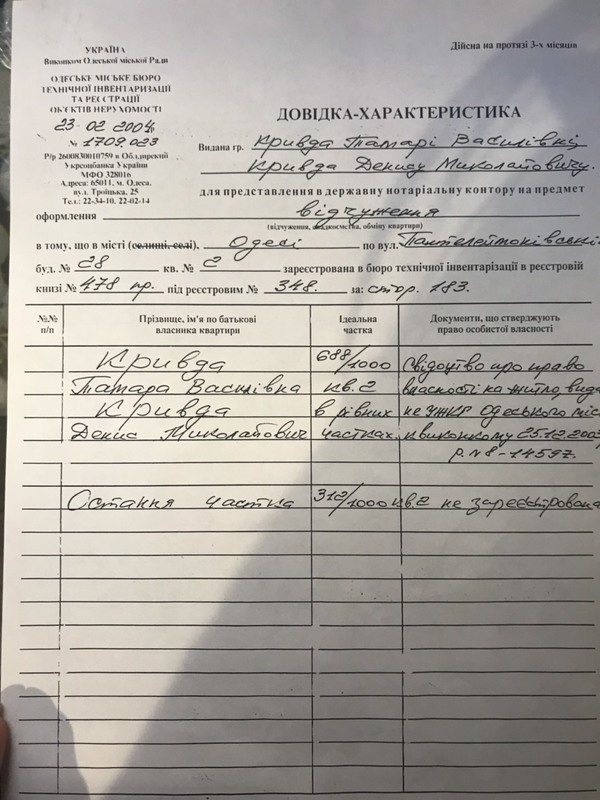 Дійсна на протязі 3-х місяців
УКРАЇНА
Виконком Одеської міської Ради
ОДЕСЬКЕ МІСЬКЕ БЮРО
ТЕХНІЧНОЇ ІНВЕНТАРИЗАЦІЇ
ТА РЕЄСТРАЦІЇ
ОБ'ЄКТІВ НЕРУХОМОСТІ
23-02 2004р
№ 1709.023
Р/р 2600830010759 в Обл.дирекції
Укрсоцбанка України
МФО 328016
Адреса: 65011, м. Одеса.
вул. Троїцька, 25
Тел.: 22-34-10, 22-02-14
ДОВІДКА-ХАРАКТЕРИСТИКА
Видана гр. Кривда Тамарі Василівні
Кривда Денису Миколайовичу.
для представлення в державну нотаріальну контору на предмет
оформлення відчуження
(відчуження, спадкоємства, обміну квартири)
в тому, що в місті (селищі, селі), Одесі по вул. Пантелеймонівській
буд. № 28 кв. № 2 зареєстрована в бюро технічної інвентаризації в реєстровій
книзі № 478 пр. під реєстровим № 348. за: стор. 183.
№№ п/п Прізвище, ім'я по батькові власника квартири Ідеальна частка Документи, що стверджують право особистої власності
Кривда 688/1000 Свідоцтво про право
Тамара Василівна кв.2 власності на житло, вида
Кривда в рівних не УЖКГ Одеського міс
Денис Миколайович частках. квиконкому 25.12.2003
р. №8-14597.
Остання частка 312/1000 кв.2 не зареєстрована